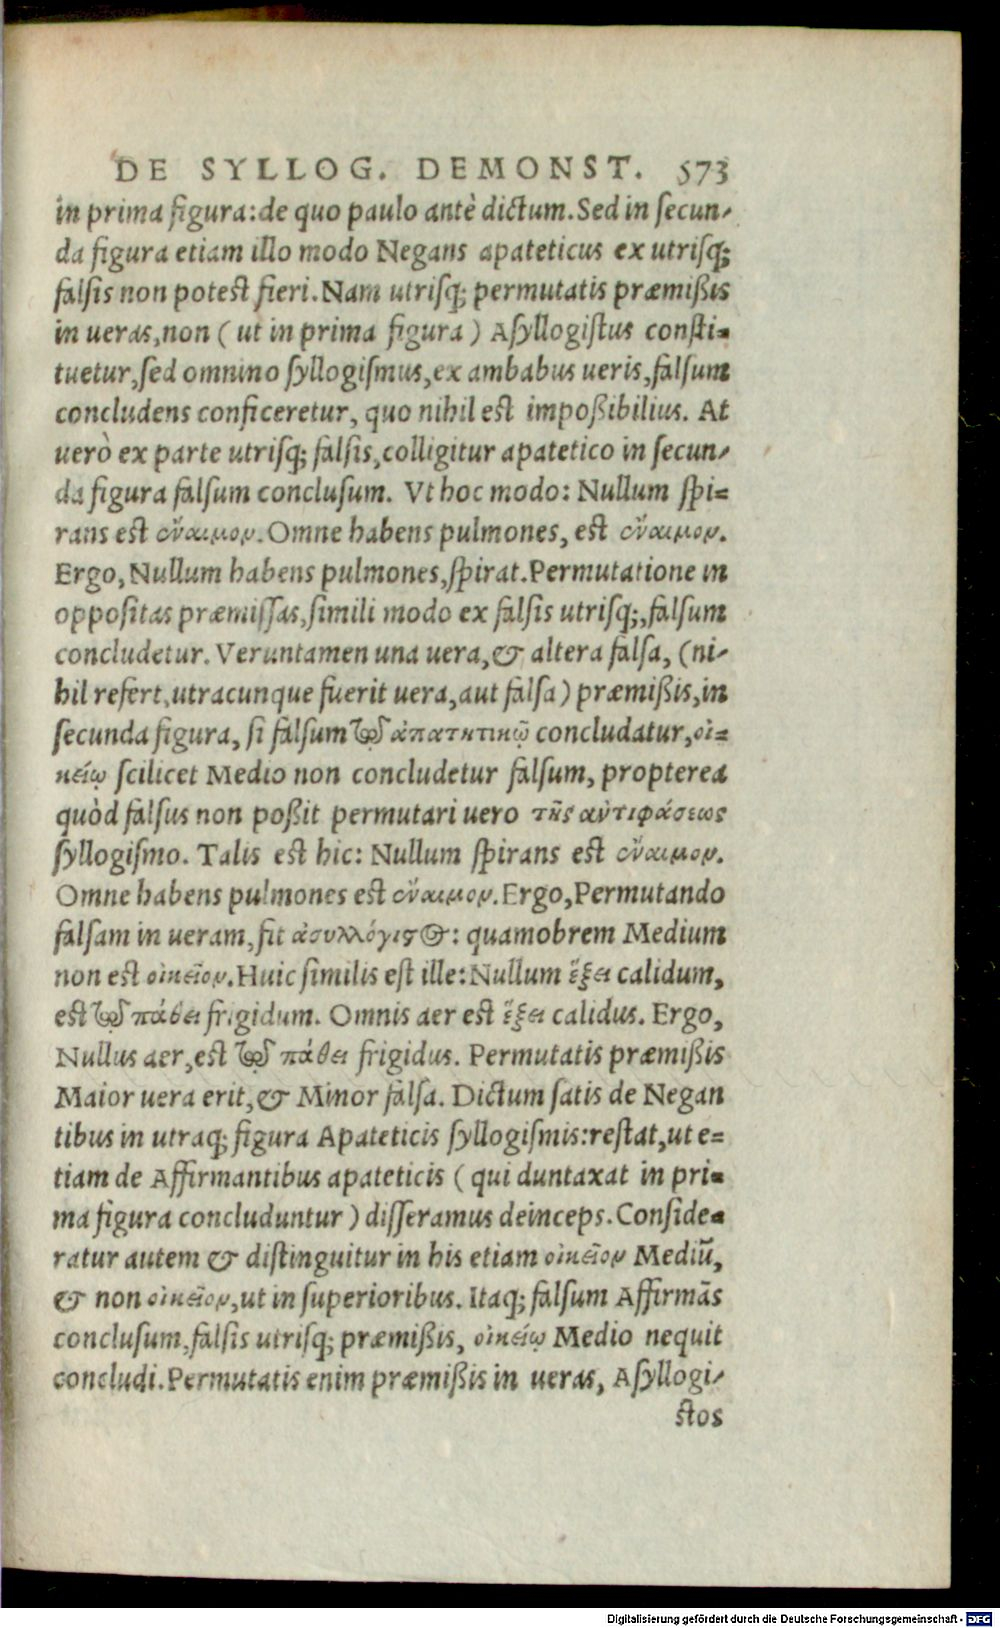 DE SYLLOG. DEMONST. 573
in prima figura: de quo paulo antè dictum. Sed in secun-
da figura etiam illo modo Negans apateticus ex utrisq;
falsis non potest fieri. Nam utrisq; permutatis præmißis
in ueras, non ( ut in prima figura ) Asyllogistus consti-
tuetur, sed omnino syllogismus, ex ambabus ueris, falsum
concludens conficeretur, quo nihil est impoßibilius. At
uerò ex parte utrisq; falsis, colligitur apatetico in secun-
da figura falsum conclusum. Vt hoc modo: Nullum spi-
rans est ἔναιμον. Omne habens pulmones, est ἔναιμον.
Ergo, Nullum habens pulmones, spirat. Permutatione in
oppositas præmissas, simili modo ex falsis utrisq;, falsum
concludetur. Veruntamen una uera, & altera falsa, (ni-
hil refert, utracunque fuerit uera, aut falsa) præmißis, in
secunda figura, si falsum τῷ ἀπατητικῷ concludatur, οἰ-
κείῳ scilicet Medio non concludetur falsum, propterea
quòd falsus non poßit permutari uero τῆς ἀντιφάσεως
syllogismo. Talis est hic: Nullum spirans est ἔναιμον.
Omne habens pulmones est ἔναιμον. Ergo, Permutando
falsam in ueram, fit ἀσυλλόγιστος: quamobrem Medium
non est οἰκεῖον. Huic similis est ille: Nullum ἕξει calidum,
est τῷ πάθει frigidum. Omnis aer est ἕξει calidus. Ergo,
Nullus aer, est τῷ πάθει frigidus. Permutatis præmißis
Maior uera erit, & Minor falsa. Dictum satis de Negan
tibus in utraq; figura Apateticis syllogismis: restat, ut e-
tiam de Affirmantibus apateticis ( qui duntaxat in pri-
ma figura concluduntur ) disseramus deinceps. Conside-
ratur autem & distinguitur in his etiam οἰκεῖον Mediũ,
& non οἰκεῖον, ut in superioribus. Itaq; falsum Affirmãs
conclusum, falsis utrisq; præmißis, οἰκείῳ Medio nequit
concludi. Permutatis enim præmißis in ueras, Asyllogi-
stos
Digitalisierung gefördert durch die Deutsche Forschungsgemeinschaft - DFG